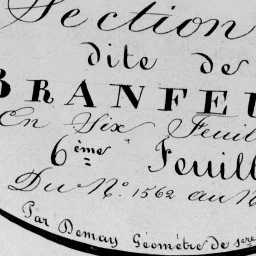 Section
dite de
BRANFEU
En Six Feuil
6ème Feuill
Du N.º 1562 au N
Par Demay Géomètre de 1ere